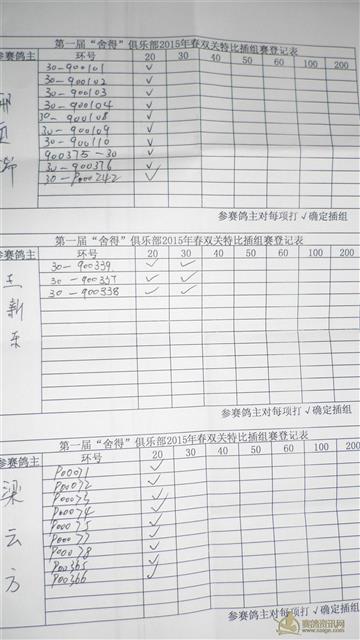 第一届“舍得”俱乐部2015年春双关特比插组赛登记表
参赛鸽主 环号 20 30 40 50 60 100 200
30-900101 ✓
30-900102 ✓
30-900103 ✓
30-900104 ✓
30-900108 ✓
30-900109 ✓
30-900110 ✓
900375-30 ✓
30-900376 ✓
30-P000242 ✓
参赛鸽主对每项打√确定插组
第一届“舍得”俱乐部2015年春双关特比插组赛登记表
参赛鸽主 环号 20 30 40 50 60 100 200
王新东
30-900339 ✓ ✓
30-900337 ✓ ✓
30-900338 ✓ ✓
参赛鸽主对每项打√确定插组
第一届“舍得”俱乐部2015年春双关特比插组赛登记表
参赛鸽主 环号 20 30 40 50 60 100 200
梁云方
P00071 ✓
P00072 ✓
P00073 ✓
P00074 ✓
P00075 ✓
P00077 ✓
P00078 ✓
P00365 ✓
P00366 ✓
参赛鸽主对每项打√确定插组
赛鸽资讯网
www.saige.com